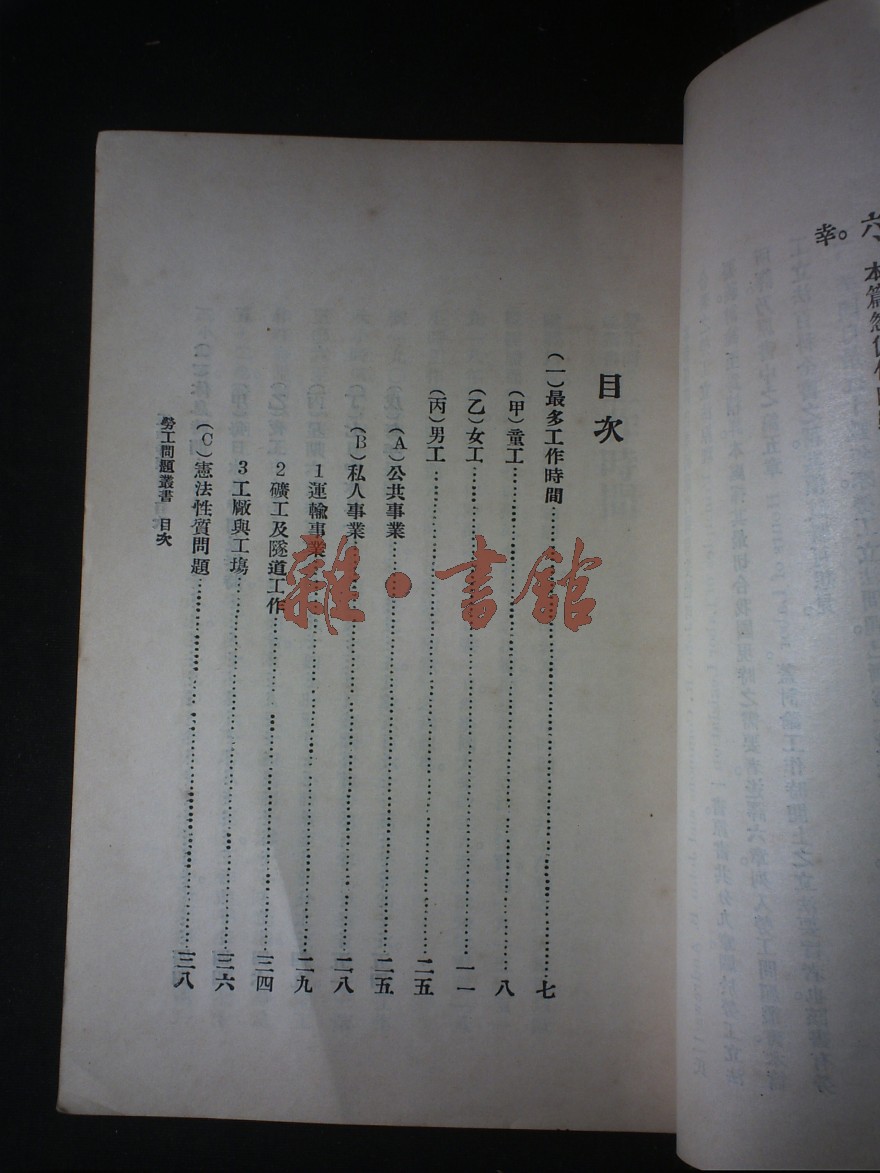 幸。
目次
（一）最多工作時間…………七
（甲）童工…………八
（乙）女工…………一一
（丙）男工…………二五
（A）公共事業…………二五
（B）私人事業…………二八
1運輸事業…………二九
2礦工及隧道工作…………三四
3工廠與工塲…………三六
（C）憲法性質問題…………三八
勞工問題叢書 目次
雜·書館